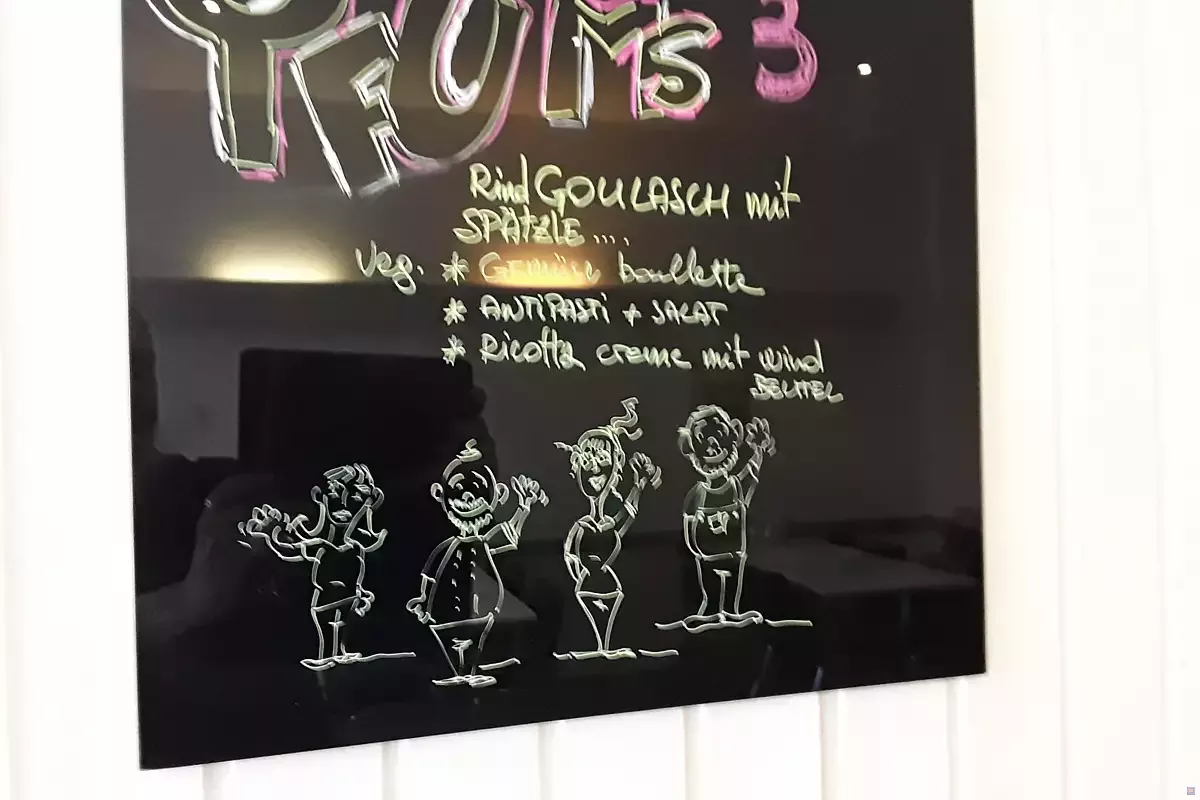 3
Rind GOULASCH mit
SPÄTZLE....
Veg. * GEMÜSE boullette
* ANTIPASTI + SALAT
* Ricotta creme mit wind
BEUTEL